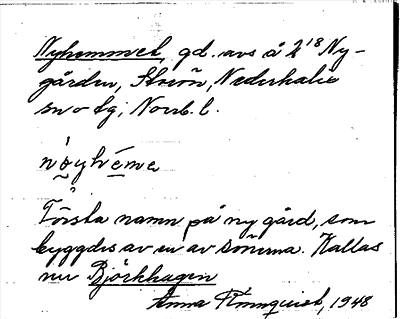 Nyhemmet, gd. avs å 2¹⁸ Ny-
gården, Storön, Nederkalix
sn o tg, Norrb. l.
nòyhéme
Första namn på ny gård, som
byggdes av en av sönerna. Kallas
nu Björkhagen
Anna 1948